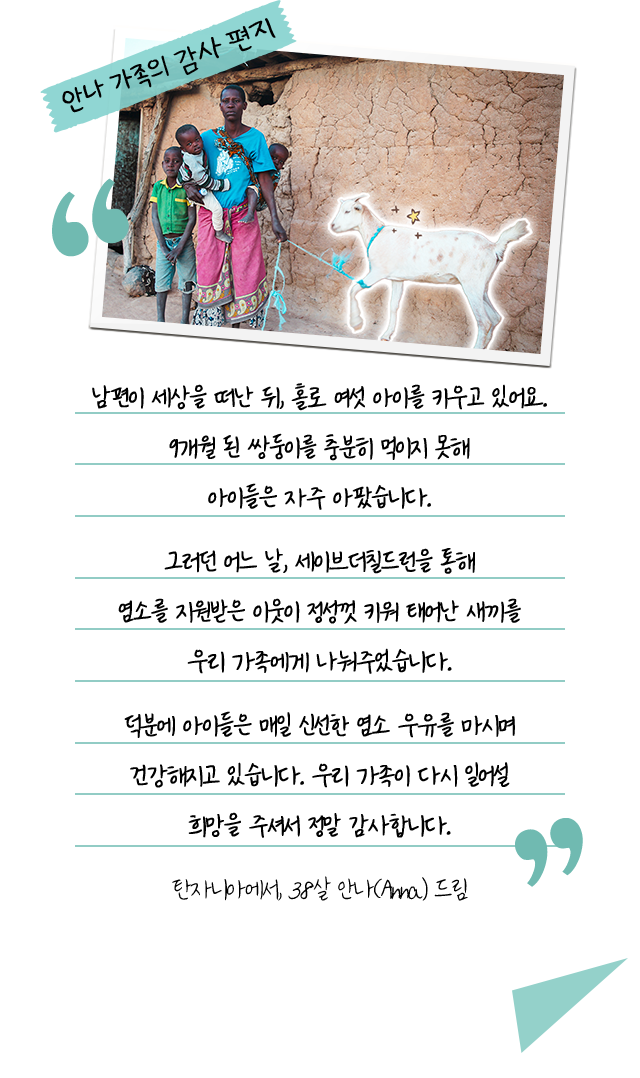 안나 가족의 감사 편지
남편이 세상을 떠난 뒤, 홀로 여섯 아이를 키우고 있어요.
9개월 된 쌍둥이를 충분히 먹이지 못해
아이들은 자주 아팠습니다.
그러던 어느 날, 세이브더칠드런을 통해
염소를 지원받은 이웃이 정성껏 키워 태어난 새끼를
우리 가족에게 나눠주었습니다.
덕분에 아이들은 매일 신선한 염소 우유를 마시며
건강해지고 있습니다. 우리 가족이 다시 일어설
희망을 주셔서 정말 감사합니다.
탄자니아에서, 38살 안나(Anna) 드림